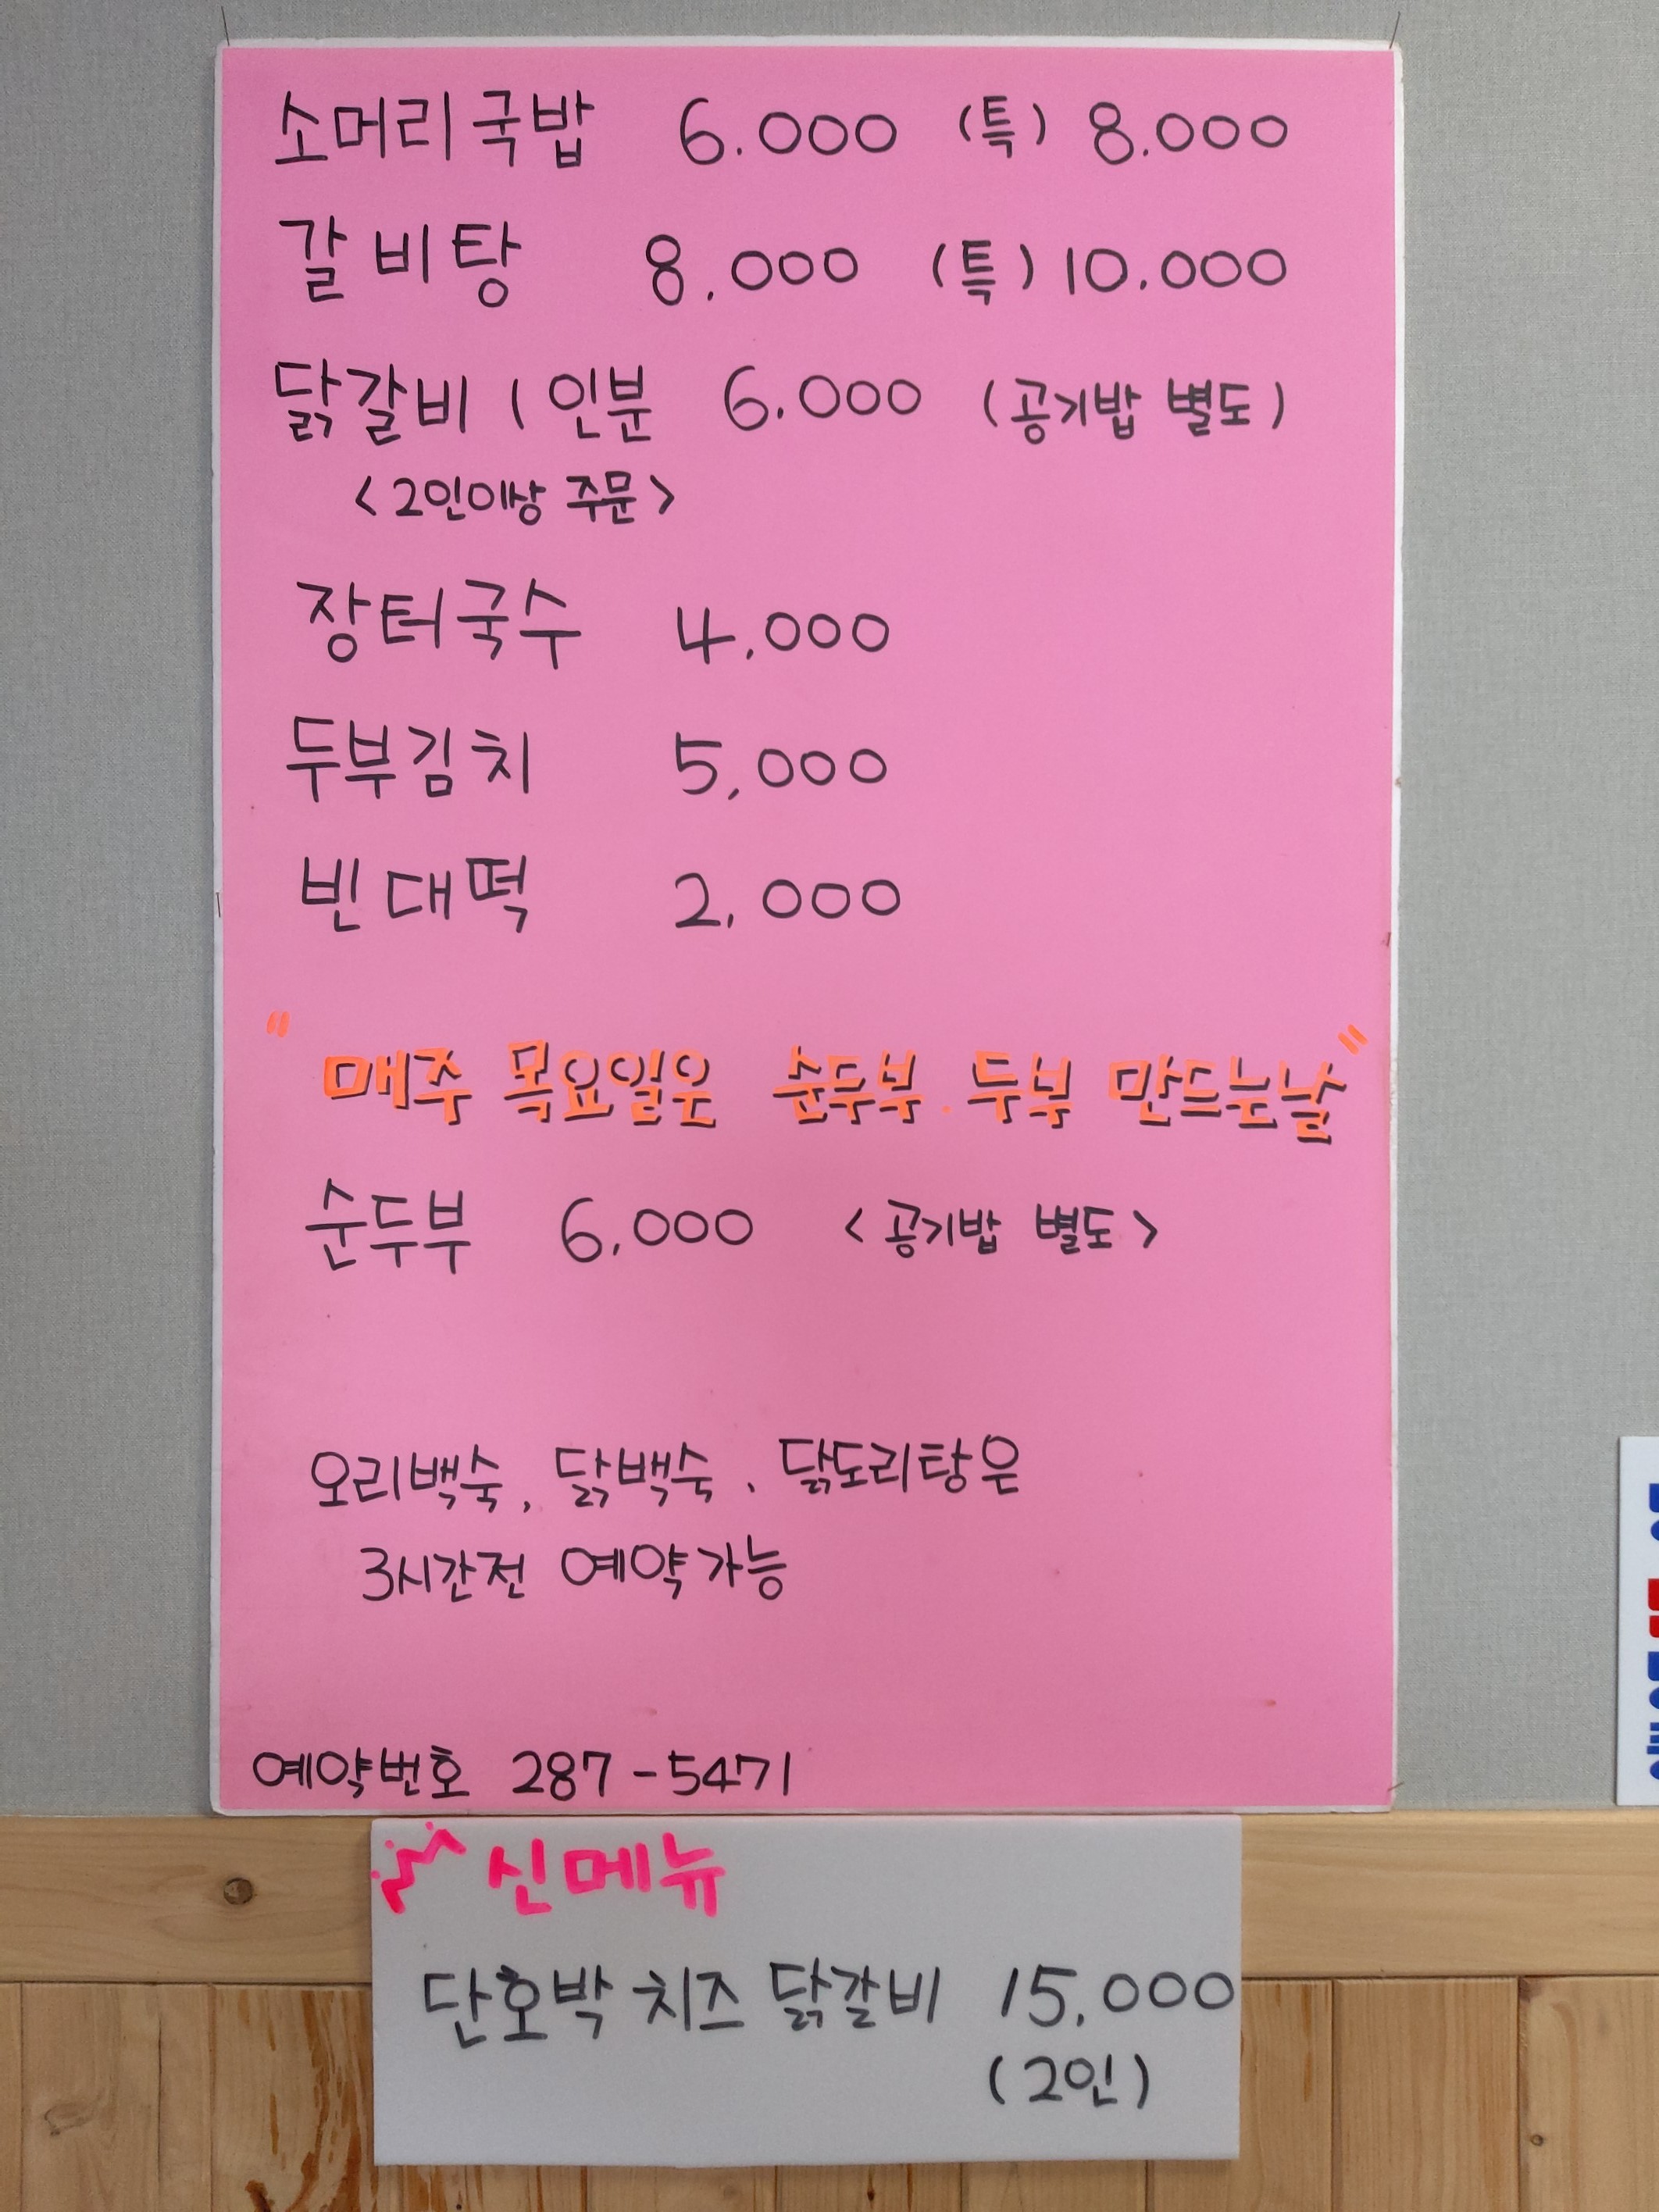 소머리국밥 6.000 (특) 8.000
갈비탕 8.000 (특) 10.000
닭갈비 1인분 6.000 (공기밥 별도)
<2인이상 주문>
장터국수 4.000
두부김치 5,000
빈대떡 2,000
"매주 목요일은 순두부. 두부 만드는날"
순두부 6,000 <공기밥 별도>
오리백숙, 닭백숙, 닭도리탕은
3시간전 예약가능
예약번호 287-5471
신메뉴
단호박 치즈 닭갈비 15,000
(2인)